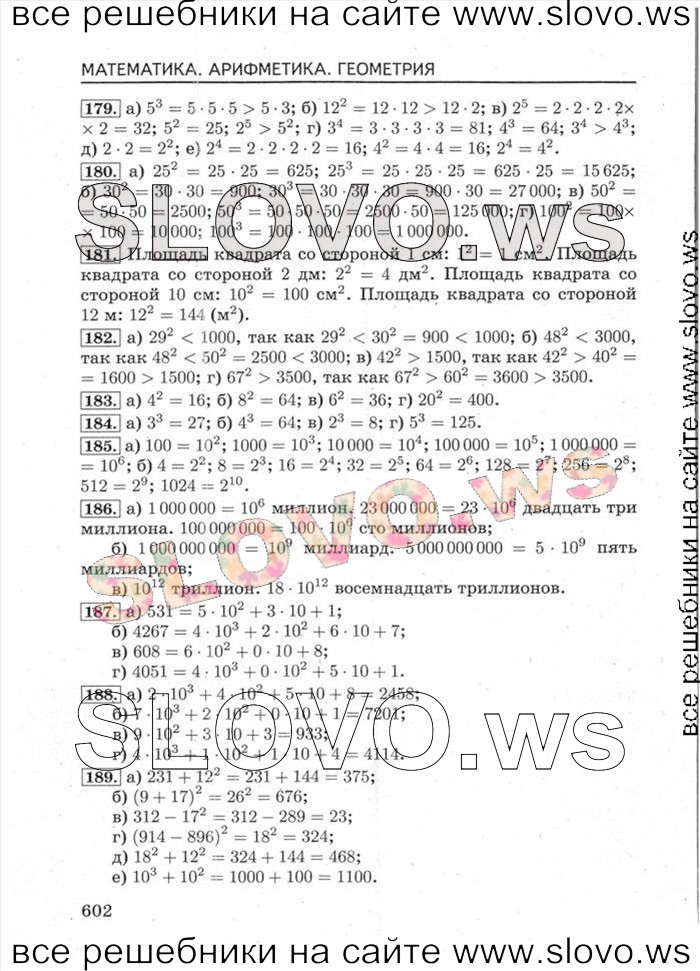 все решебники на сайте www.slovo.ws
МАТЕМАТИКА. АРИФМЕТИКА. ГЕОМЕТРИЯ
179. а) 5³ = 5 · 5 · 5 > 5 · 3; б) 12² = 12 · 12 > 12 · 2; в) 2⁵ = 2 · 2 · 2 · 2×
× 2 = 32; 5² = 25; 2⁵ > 5²; г) 3⁴ = 3 · 3 · 3 · 3 = 81; 4³ = 64; 3⁴ > 4³;
д) 2 · 2 = 2²; е) 2⁴ = 2 · 2 · 2 · 2 = 16; 4² = 4 · 4 = 16; 2⁴ = 4².
180. а) 25² = 25 · 25 = 625; 25³ = 25 · 25 · 25 = 625 · 25 = 15 625;
б) 30² = 30 · 30 = 900; 30³ = 30 · 30 · 30 = 900 · 30 = 27 000; в) 50² =
= 50 · 50 = 2500; 50³ = 50 · 50 · 50 = 2500 · 50 = 125 000; г) 100² = 100×
× 100 = 10 000; 100³ = 100 · 100 · 100 = 1 000 000.
181. Площадь квадрата со стороной 1 см: 1² = 1 см². Площадь
квадрата со стороной 2 дм: 2² = 4 дм². Площадь квадрата со
стороной 10 см: 10² = 100 см². Площадь квадрата со стороной
12 м: 12² = 144 (м²).
182. а) 29² < 1000, так как 29² < 30² = 900 < 1000; б) 48² < 3000,
так как 48² < 50² = 2500 < 3000; в) 42² > 1500, так как 42² > 40² =
= 1600 > 1500; г) 67² > 3500, так как 67² > 60² = 3600 > 3500.
183. а) 4² = 16; б) 8² = 64; в) 6² = 36; г) 20² = 400.
184. а) 3³ = 27; б) 4³ = 64; в) 2³ = 8; г) 5³ = 125.
185. а) 100 = 10²; 1000 = 10³; 10 000 = 10⁴; 100 000 = 10⁵; 1 000 000 =
= 10⁶; б) 4 = 2²; 8 = 2³; 16 = 2⁴; 32 = 2⁵; 64 = 2⁶; 128 = 2⁷; 256 = 2⁸;
512 = 2⁹; 1024 = 2¹⁰.
186. а) 1 000 000 = 10⁶ миллион. 23 000 000 = 23 · 10⁶ двадцать три
миллиона. 100 000 000 = 100 · 10⁶ сто миллионов;
б) 1 000 000 000 = 10⁹ миллиард. 5 000 000 000 = 5 · 10⁹ пять
миллиардов;
в) 10¹² триллион. 18 · 10¹² восемнадцать триллионов.
187. а) 531 = 5 · 10² + 3 · 10 + 1;
б) 4267 = 4 · 10³ + 2 · 10² + 6 · 10 + 7;
в) 608 = 6 · 10² + 0 · 10 + 8;
г) 4051 = 4 · 10³ + 0 · 10² + 5 · 10 + 1.
188. а) 2 · 10³ + 4 · 10² + 5 · 10 + 8 = 2458;
б) 7 · 10³ + 2 · 10² + 0 · 10 + 1 = 7201;
в) 9 · 10² + 3 · 10 + 3 = 933;
г) 4 · 10³ + 1 · 10² + 1 · 10 + 4 = 4114.
189. а) 231 + 12² = 231 + 144 = 375;
б) (9 + 17)² = 26² = 676;
в) 312 − 17² = 312 − 289 = 23;
г) (914 − 896)² = 18² = 324;
д) 18² + 12² = 324 + 144 = 468;
е) 10³ + 10² = 1000 + 100 = 1100.
602
SLOVO.ws
SLOVO.ws
SLOVO.ws
все решебники на сайте www.slovo.ws
все решебники на сайте www.slovo.ws